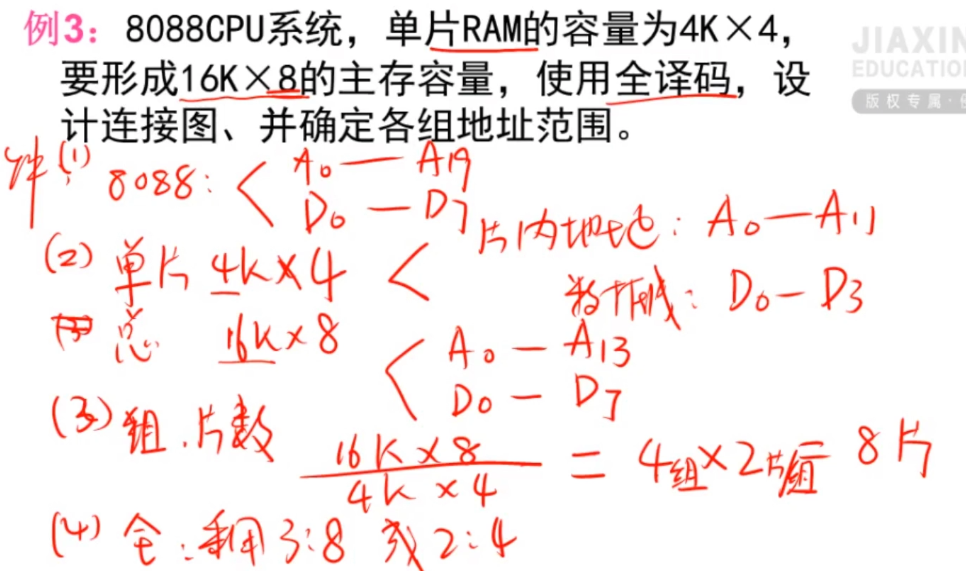 例3：8088CPU系统，单片RAM的容量为4K×4，
要形成16K×8的主存容量，使用全译码，设
计连接图、并确定各组地址范围。
JIAXIN
EDUCATIO
版权专属·
(1) 8088: A0—A19
D0—D7
(2) 单片 4K×4 片内地址: A0—A11
数据线: D0—D3
总 16K×8 A0—A13
D0—D7
(3) 组.片数 16K×8 / 4K×4 = 4组×2片/组 = 8片
(4) 全: 利用3:8 或2:4